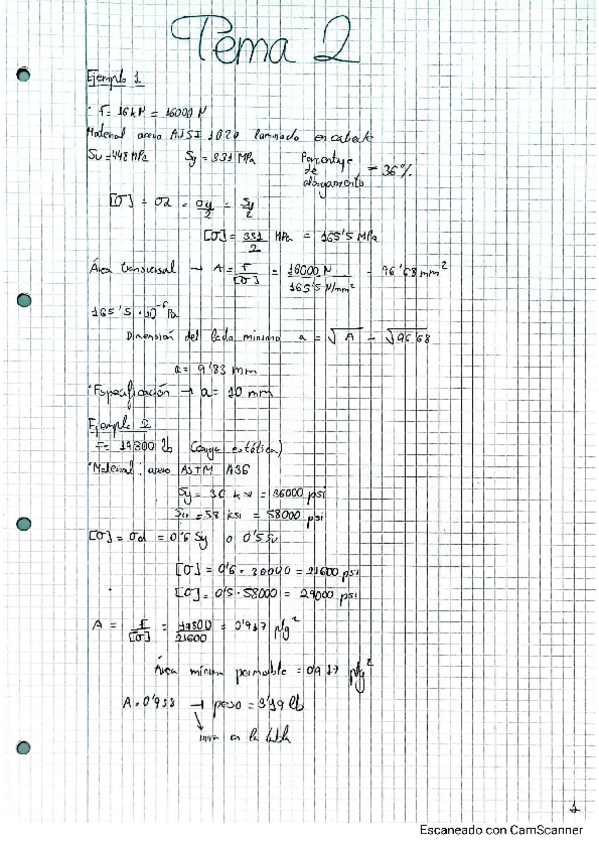 Tema 2
Ejemplo 1
· F = 16 kN = 16000 N
Material acero AJSI 1020 laminado en caliente
Su = 448 MPa Sy = 331 MPa Porcentaje de alargamiento = 36%
[σ] = σd = σy/2 = Sy/2
[σ] = 331/2 MPa = 165'5 MPa
Área transversal → A = F/[σ] = 16000 N/165'5 N/mm² = 96'68 mm²
165'5 · 10⁻⁶ Pa
Dimensión del lado mínimo a = √A = √96'68
a = 9'83 mm
· Especificación → a = 10 mm
Ejemplo 2
F = 19800 lb (carga estática)
· Material: acero ASTM A36
Sy = 36 ksi = 36000 psi
Su = 58 ksi = 58000 psi
[σ] = σd = 0'6 Sy o 0'5 Su
[σ] = 0'6 · 36000 = 21600 psi
[σ] = 0'5 · 58000 = 29000 psi
A = F/[σ] = 19800/21600 = 0'917 plg²
Área mínima permisible = 0'917 plg²
A = 0'938 → peso = 3'19 lb
en la tabla
1
Escaneado con CamScanner